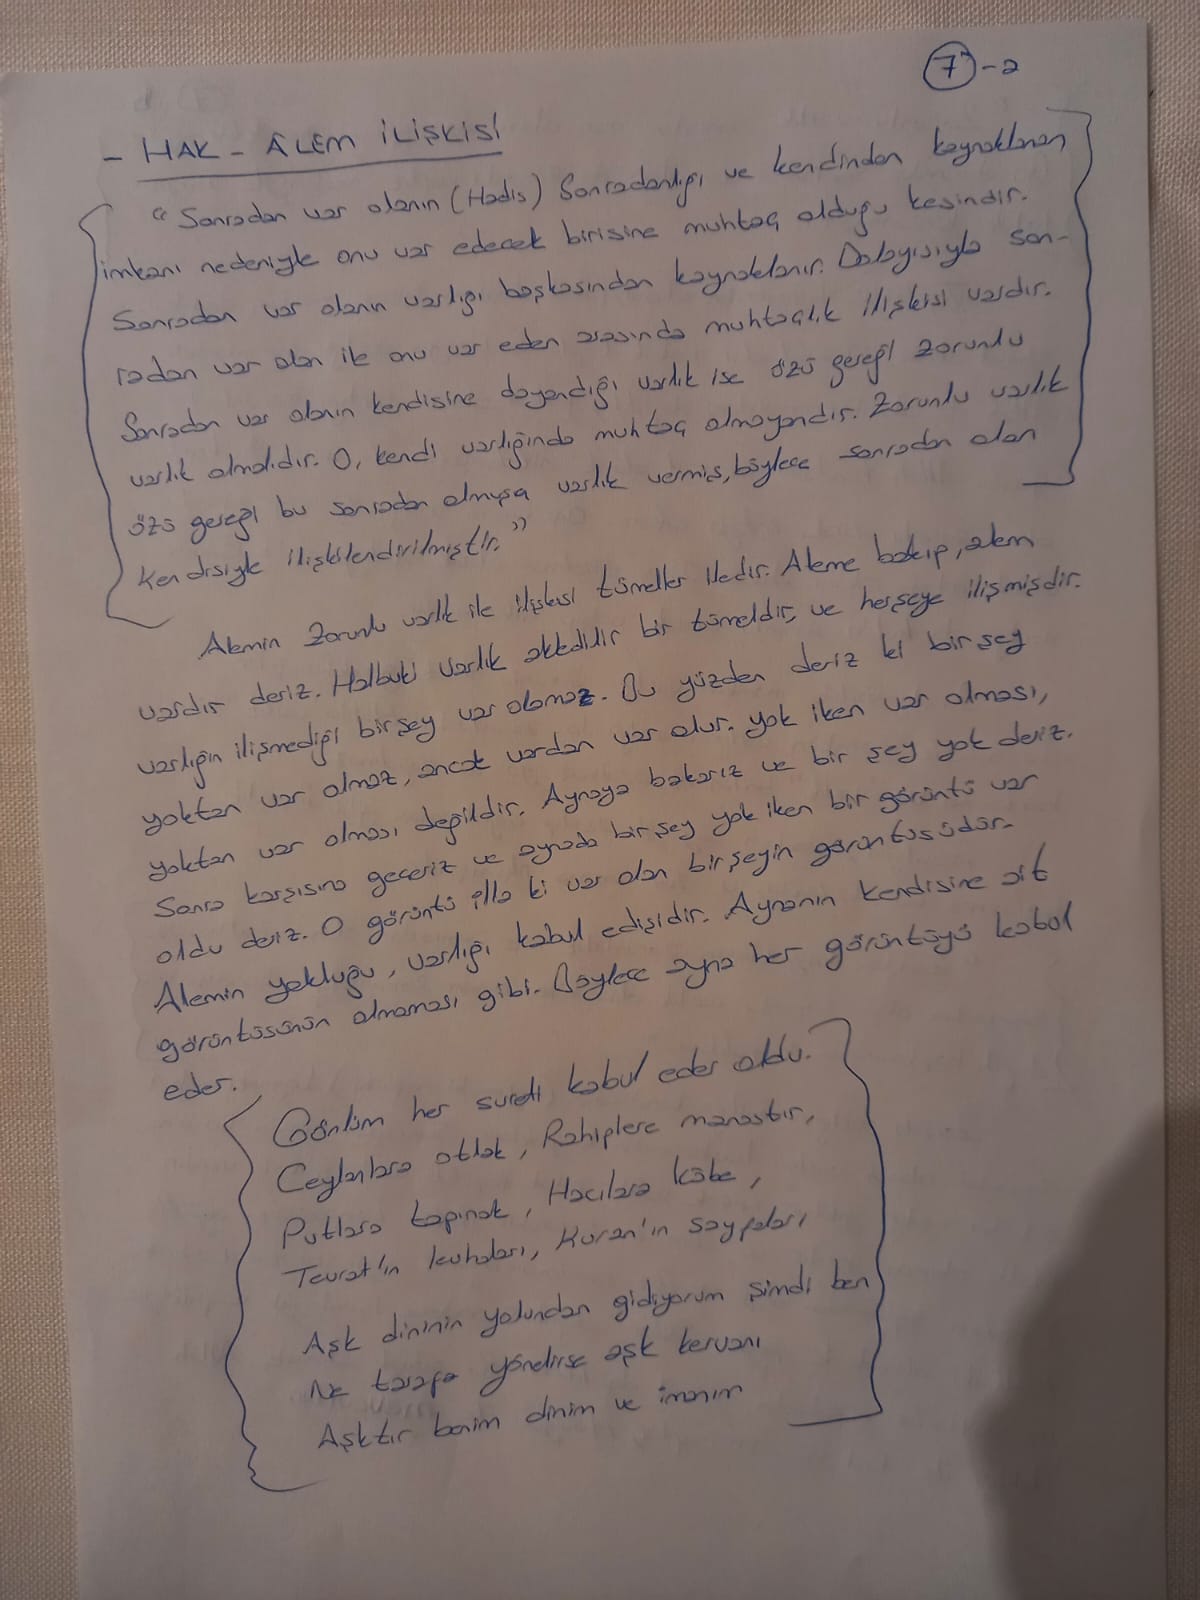 7-a
- HAK - ALEM İLİŞKİSİ
"Sonradan var olanın (Hadis) Sonradanlığı ve kendinden kaynaklanan
imkanı nedeniyle onu var edecek birisine muhtaç olduğu kesindir.
Sonradan var olanın varlığı başkasından kaynaklanır. Dolayısıyla son-
radan var olan ile onu var eden arasında muhtaçlık ilişkisi vardır.
Sonradan var olanın kendisine dayandığı varlık ise özü gereği zorunlu
varlık olmalıdır. O, kendi varlığında muhtaç olmayandır. Zorunlu varlık
özü gereği bu sonradan olmuşa varlık vermiş, böylece sonradan olan
Kendisiyle ilişkilendirilmiştir."
Alemin Zorunlu varlık ile ilişkisi tümeller iledir. Aleme bakıp, alem
vardır deriz. Halbuki varlık akledilir bir tümeldir, ve herşeye ilişmişdir.
varlığın ilişmediği birşey var olamaz. Bu yüzden deriz ki birşey
yoktan var olmaz, ancak vardan var olur. yok iken var olması,
yoktan var olması değildir. Aynaya bakarız ve bir şey yok deriz.
Sonra karşısına geçeriz ve aynada birşey yok iken bir görüntü var
oldu deriz. O görüntü illa ki var olan birşeyin görüntüsüdür.
Alemin yokluğu, varlığı kabul edişidir. Aynanın kendisine ait
görüntüsünün olmaması gibi. Böylece ayna her görüntüyü kabul
eder.
Gönlüm her sureti kabul eder oldu.
Ceylanlara otlak, Rahiplere manastır,
Putlara tapınak, Hacılara kâbe,
Tevrat'ın levhaları, Kuran'ın sayfaları
Aşk dininin yolundan gidiyorum şimdi ben
Ne tarafa yönelirse aşk kervanı
Aşktır benim dinim ve imanım